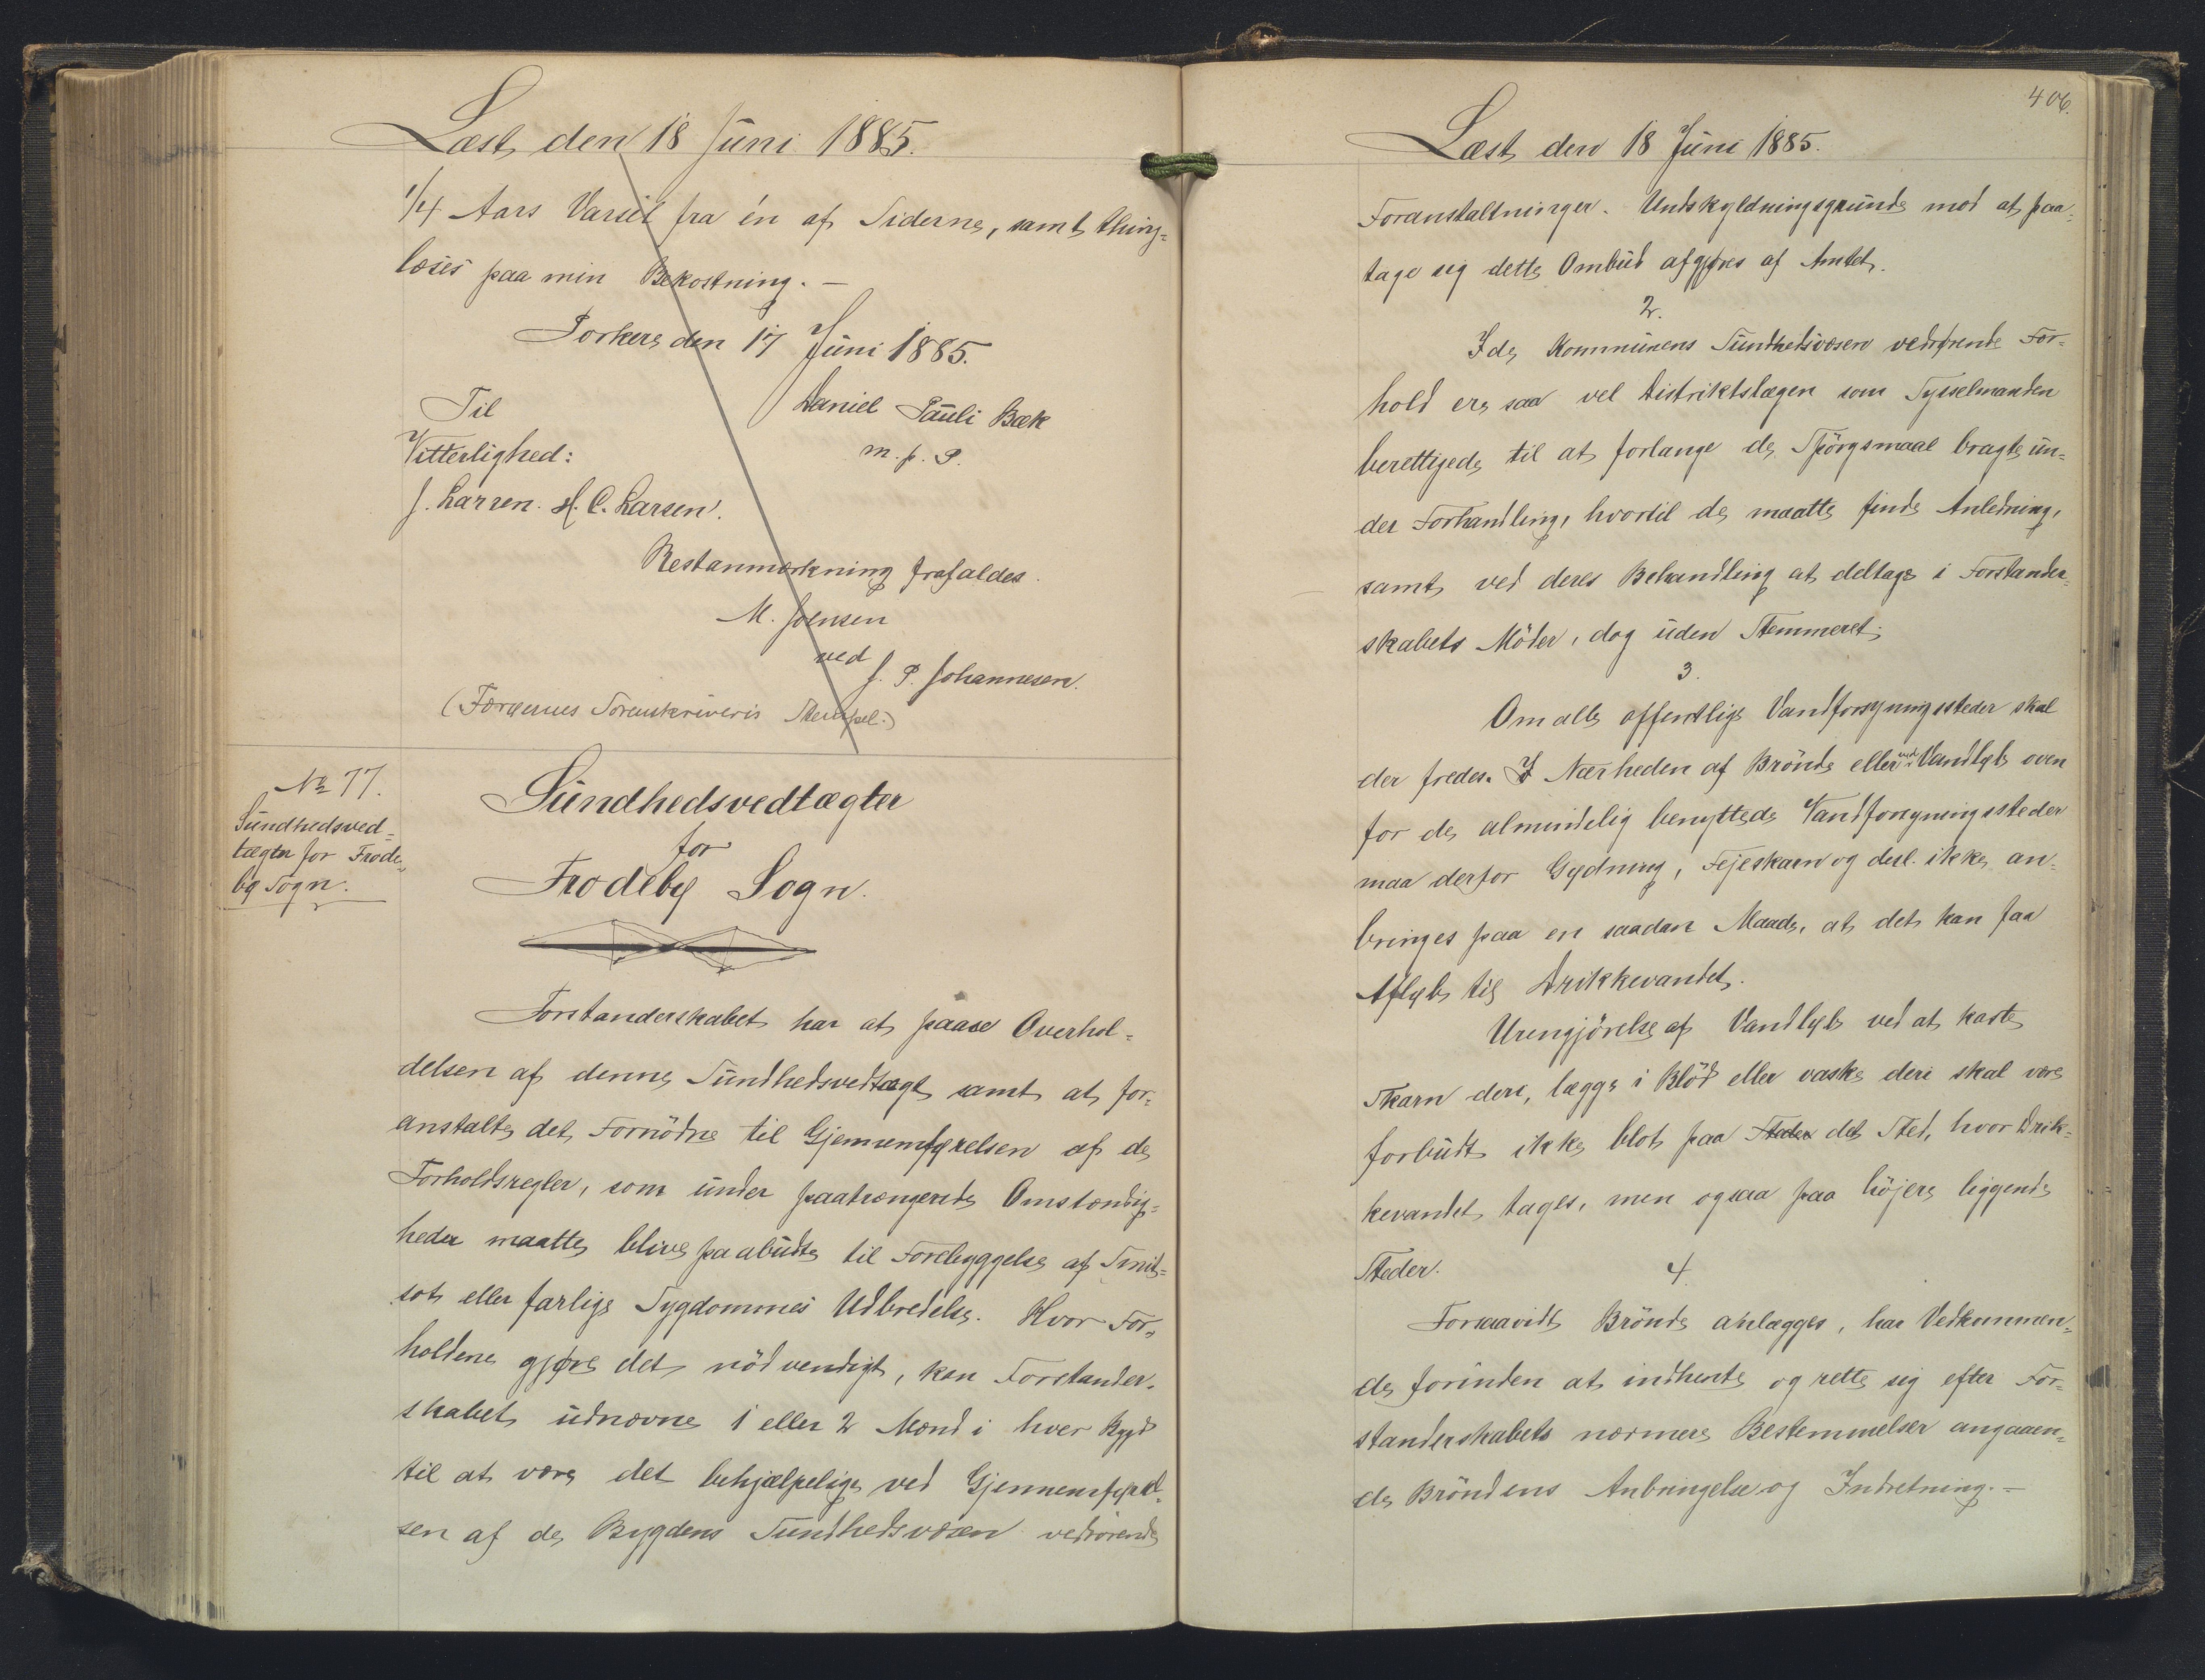 Læst den 18 Juni 1885.
1/4 Aars Varsel fra én af Siderne, samt thing=
læses paa min Bekostning. —
Porkere den 17 Juni 1885.
Til
Daniel Pauli Bæk
Vitterlighed:
m. p. P.
J. Larsen. H. C. Larsen.
Restanmærkning frafaldes.
M. Joensen
ved
J. P. Johannesen.
(Færøernes Sorenskriveris Stempel.)
No 77.
Sundhedsved=
tægter for Frode=
by Sogn.
Sundhedsvedtægter
for
Frodeby Sogn.
Forstanderskabet har at paase Overhol=
delsen af denne Sundhedsvedtægt samt at for=
anstalte det Fornödne til Gjennemførelsen af de
Forholdsregler, som under paatrængende Omstændig=
heder maatte blive paabudte til Forebyggelse af Smit=
sot eller farlige Sygdommes Udbredelse. Hvor For=
holdene gjøre det nödvendigt, kan Forstander=
skabet udnævne 1 eller 2 Mænd i hver Bygd
til at være det behjælpelige ved Gjennemførel=
sen af de Bygdens Sundhedsvæsen vedrörende
406.
Læst den 18 Juni 1885.
Foranstaltninger. Undskyldningsgrunde mod at paa=
tage sig dette Ombud afgjøres af Amtet.
2.
I de Kommunens Sundhedsvæsen vedrørende For=
hold ere saa vel Distriktslægen som Sysselmanden
berettigede til at forlange de Spörgsmaal bragte un=
der Forhandling, hvortil de maatte finde Anledning,
samt ved deres Behandling at deltage i Forstander=
skabets Möder, dog uden Stemmeret.
3.
Om alle offentlige Vandforsyningssteder skal
der fredes. I Nærheden af Brönde eller ved Vandløb oven
for de almindelig benyttede Vandforsyningssteder
maa derfor Gødning, Fejeskarn og desl. ikke an=
bringes paa en saadan Maade, at det kan faa
Afløb til Drikkevandet.
Urengjörelse af Vandløb ved at kaste
Skarn deri, lægge i Blöd eller vaske deri skal være
forbudt ikke blot paa Steder det Sted, hvor Drik=
kevandet tages, men ogsaa paa höjere liggende
Steder.
4.
Forsaavidt Brönde anlægges, har Vedkommen=
de forinden at indhente og rette sig efter For=
standerskabets nærmere Bestemmelser angaaen=
de Bröndens Anbringelse og Indretning. —